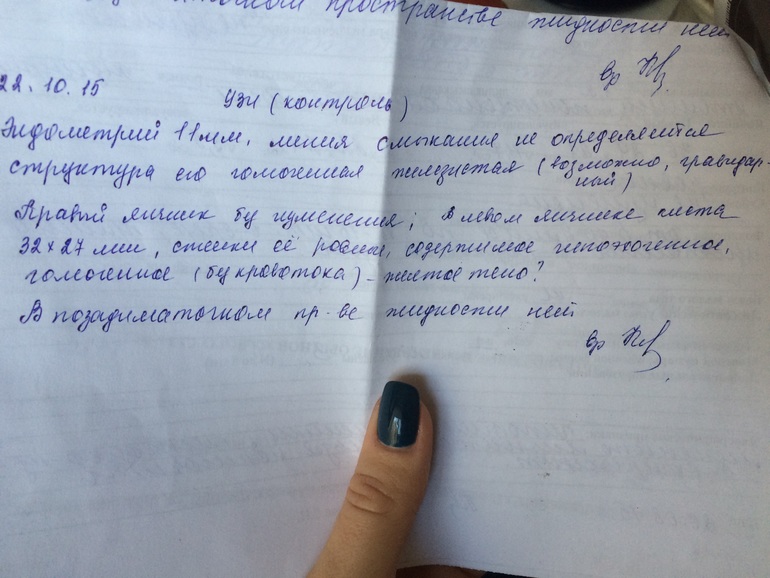 пространстве жидкости нет
вр
22.10.15 УЗИ (контроль)
Эндометрий 11 мм, линия смыкания не определяется
структура его гомогенная железистая (возможно, гравидар-
ный)
Правый яичник без изменения; В левом яичнике киста
32×27 мм, стенки её ровные, содержимое гипоэхогенное,
гомогенное (без кровотока) – желтое тело?
В позадиматочном пр-ве жидкости нет
вр